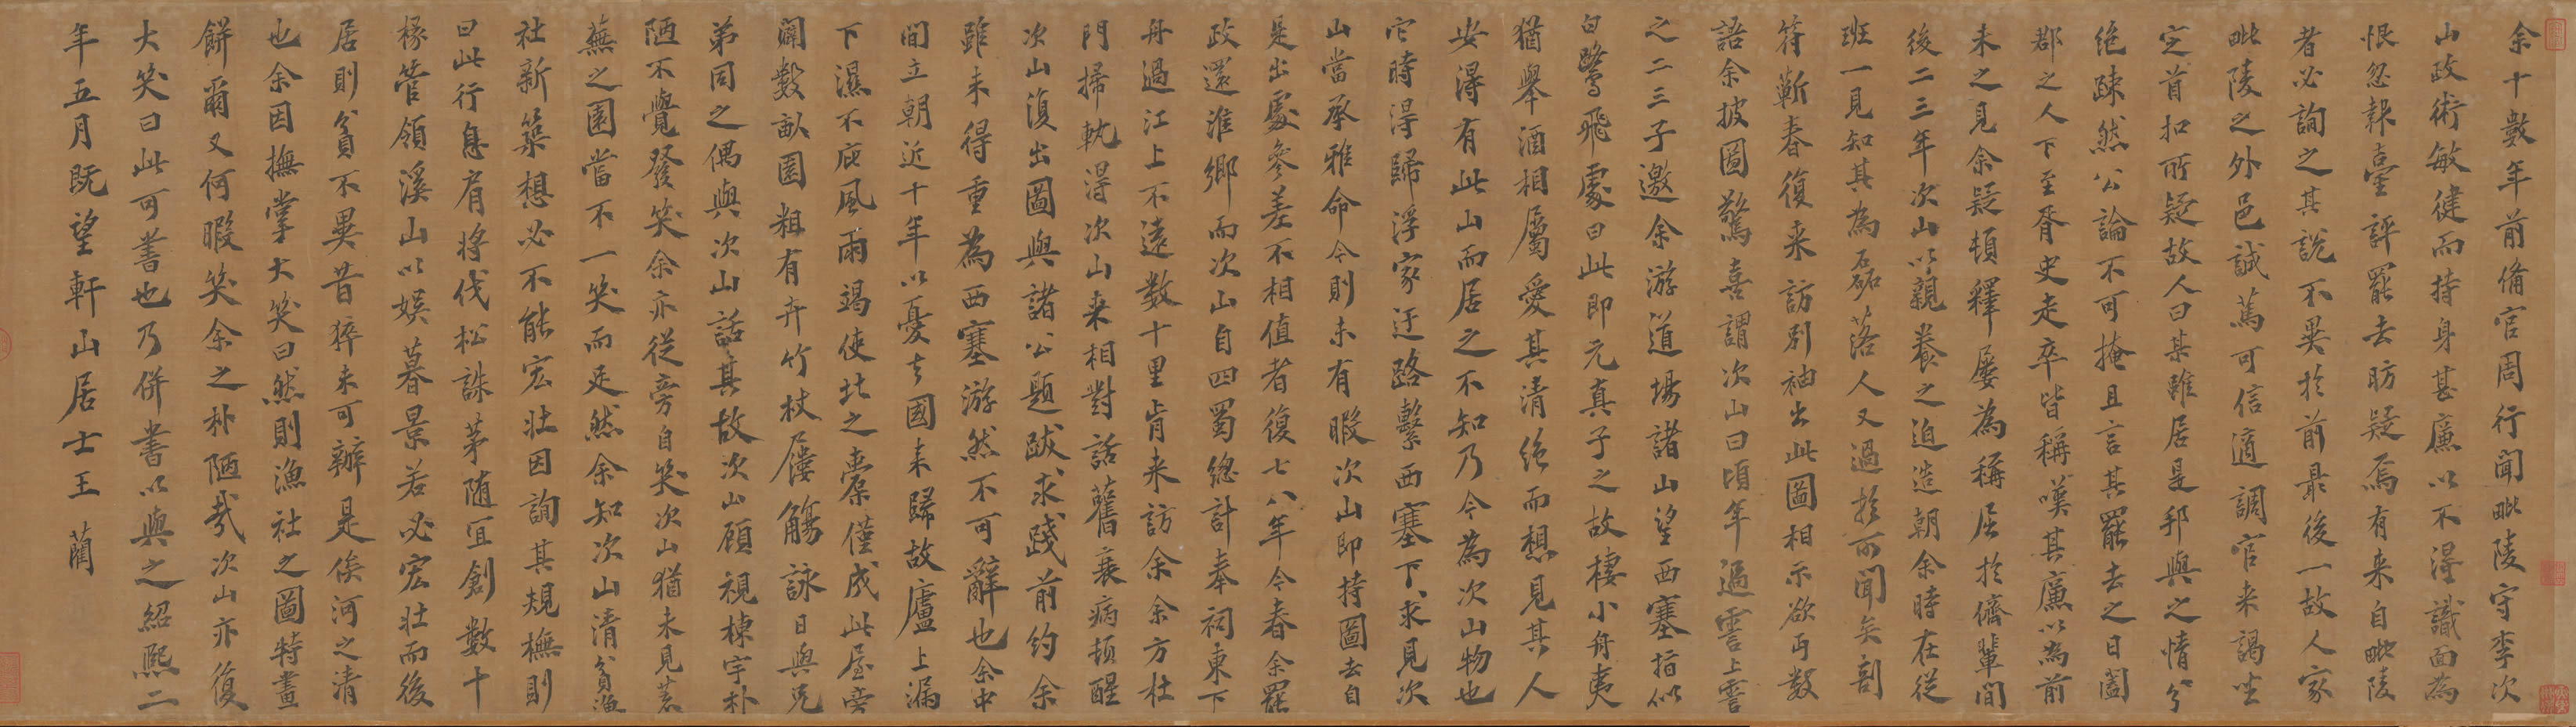 余十數年前備官周行聞毗陵守李次
山政術敏健而持身甚廉以不淂識面為
恨忽報臺評罷去昉疑焉有来自毗陵
者必詢之其說不異於前最後一故人家
毗陵之外邑誠篤可信適調官来謁坐
定首扣所疑故人曰某雖居是邦與之情分
絶踈然公論不可掩且言其罷去之日闔
郡之人下至胥史走卒皆稱嘆其廉以為前
未之見余疑頓釋屢為稱屈於儕輩間
後二三年次山以親養之迫造朝余時在従
班一見知其為磊落人又過於所聞矣剖
符蘄春復来訪别袖出此圖相示欲丐數
語余披圖驚喜謂次山曰頃年過霅上霅
之二三子邀余游道場諸山望西塞指似
白鷺飛處曰此即元真子之故棲小舟夷
猶舉酒相屬愛其清絶而想見其人
安淂有此山而居之不知乃今為次山物也
它時淂歸浮家迂路繫西塞下求見次
山當承雅命今則未有暇次山即持圖去自
是出處參差不相值者復七八年今春余罷
政還淮鄉而次山自四蜀總計奉祠東下
舟過江上不遠數十里肯来訪余余方杜
門掃軌淂次山来相對話舊衰病頓醒
次山復出圖與諸公題跋求踐前約余
雖未得重為西塞游然不可辭也余中
間立朝近十年以憂去國未歸故廬上漏
下濕不庇風雨竭使北之橐僅成此屋旁
闢數畝園粗有卉竹杖屨觴詠日與兄
弟同之偶與次山話其故次山顧視棟宇朴
陋不覺發笑余亦従旁自笑次山猶未見荒
蕪之園當不一笑而足然余知次山清貧漁
社新築想必不能宏壯因詢其規橅則
曰此行息肩将伐松誅茅随宜創數十
椽管領溪山以娱暮景若必宏壯而後
居則貧不異昔猝未可辦是俟河之清
也余因撫掌大笑曰然則漁社之圖特畫
餅爾又何暇笑余之朴陋哉次山亦復
大笑曰此可書也乃併書以與之紹熙二
年五月既望軒山居士王藺